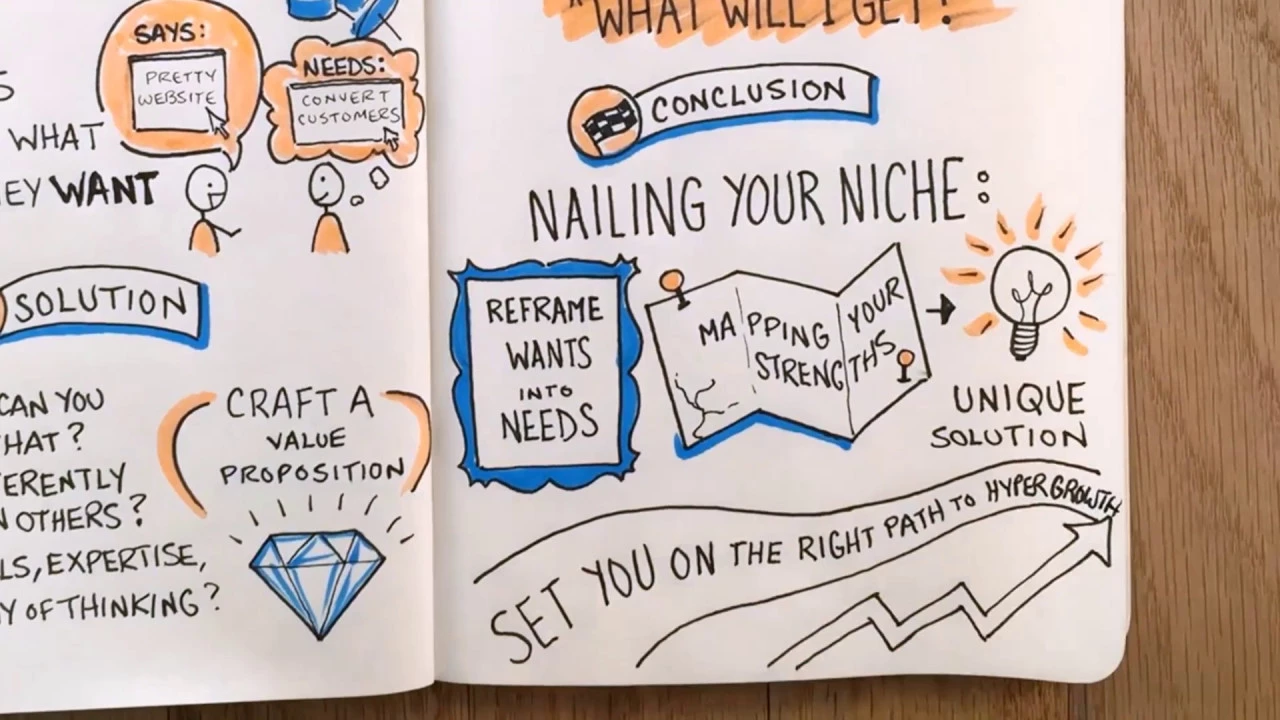 SAYS:
PRETTY
WEBSITE
NEEDS:
CONVERT
CUSTOMERS
WHAT
WANT
SOLUTION
CAN YOU
HAT?
ERENTLY
OTHERS?
LS, EXPERTISE,
Y OF THINKING?
CRAFT A
VALUE
PROPOSITION
"WHAT WILL I GET?
CONCLUSION
NAILING YOUR NICHE:
REFRAME
WANTS
INTO
NEEDS
MAPPING YOUR
STRENGTHS
UNIQUE
SOLUTION
SET YOU ON THE RIGHT PATH TO HYPERGROWTH